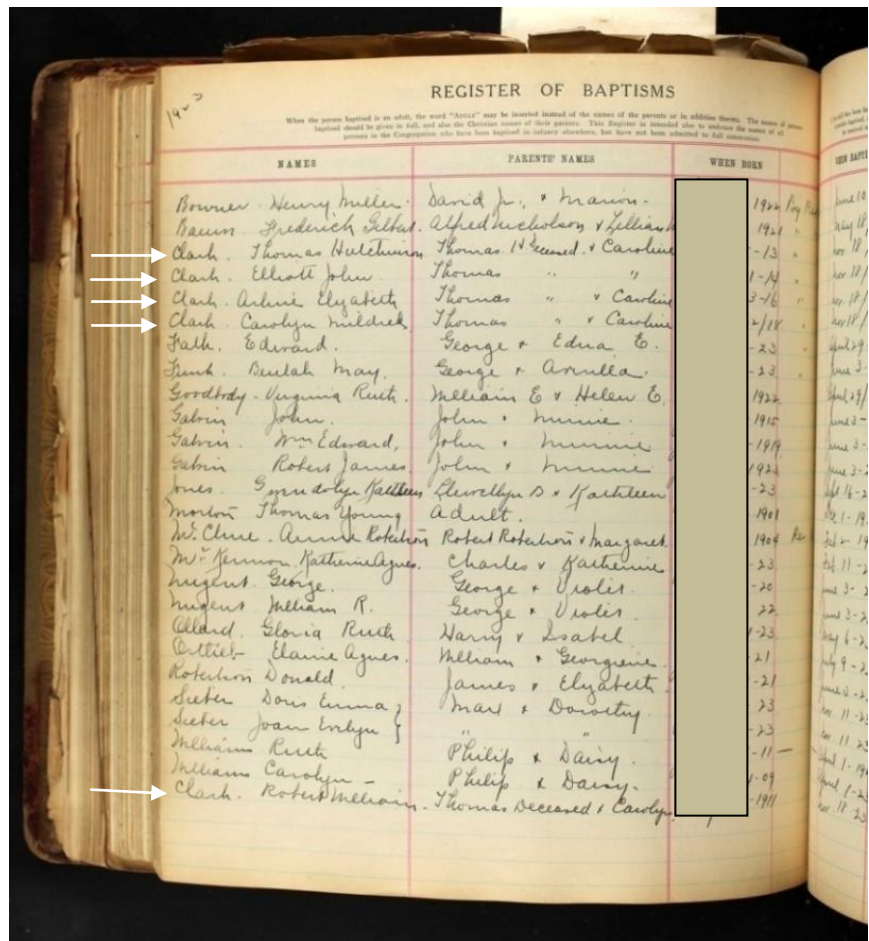 1923
REGISTER OF BAPTISMS
When the person baptized is an adult, the word "ADULT" may be inserted instead of the names of the parents or in addition thereto. The names of person
baptized should be given in full, and also the Christian names of their parents. This Register is intended also to embrace the names of all
persons in the Congregation who have been baptized in infancy elsewhere, but have not been admitted to full communion.
NAMES PARENTS' NAMES WHEN BORN
Henry Miller David Jr. & Marion 1922
Frederick Gilbert. Alfred Nicholson & Lillian 1921 May 18
Clark. Thomas Hutchinson Thomas H Deceased & Caroline -13 Nov. 18
Clark. Elliott John Thomas " " -14 Nov 18
Clark. Elizabeth Thomas " & Caroline 3-16 Nov 18
Clark. Carolyn Mildred Thomas " & Caroline 2/18 Nov 18
Falk. Edward. George & Edna E. -23 April 29
Beulah May. George & -23 June 3
Goodbody - Virginia Ruth. William E & Helen E. 1922 April 29
Galvin John. John & Minnie 1915 June 3
Galvin. Wm Edward, John & Minnie -1919 June 3
Galvin Robert James. John & Minnie 1923 June 3
Jones. Gwendolyn Kathleen Llewellyn D & Kathleen -23 Sept 16
Morton Thomas Young Adult. 1901
McClure. Annie Robertson Robert Robertson & Margaret. 1904
McKennon. Katherine Agnes. Charles & Katherine -23 Feb 11
Nugent. George. George & Violet. -20 June 3
Nugent William R. George & Violet. 22 June 3
Allard. Gloria Ruth Harry & Isabel -23 May 6
Ortlieb Elaine Agnes. William & Georgiene -21 July 9
Robertson Donald. James & Elizabeth -21
Sieber Doris Emma Max & Dorothy 23 Nov. 11
Sieber Joan Evelyn " " -23 Nov. 11 23
Williams Ruth Philip & Daisy. -11 - April 1
Williams Carolyn - Philip & Daisy. -09 April 1-23
Clark. Robert William. Thomas Deceased & Carolyn. -1911 Nov. 18-23